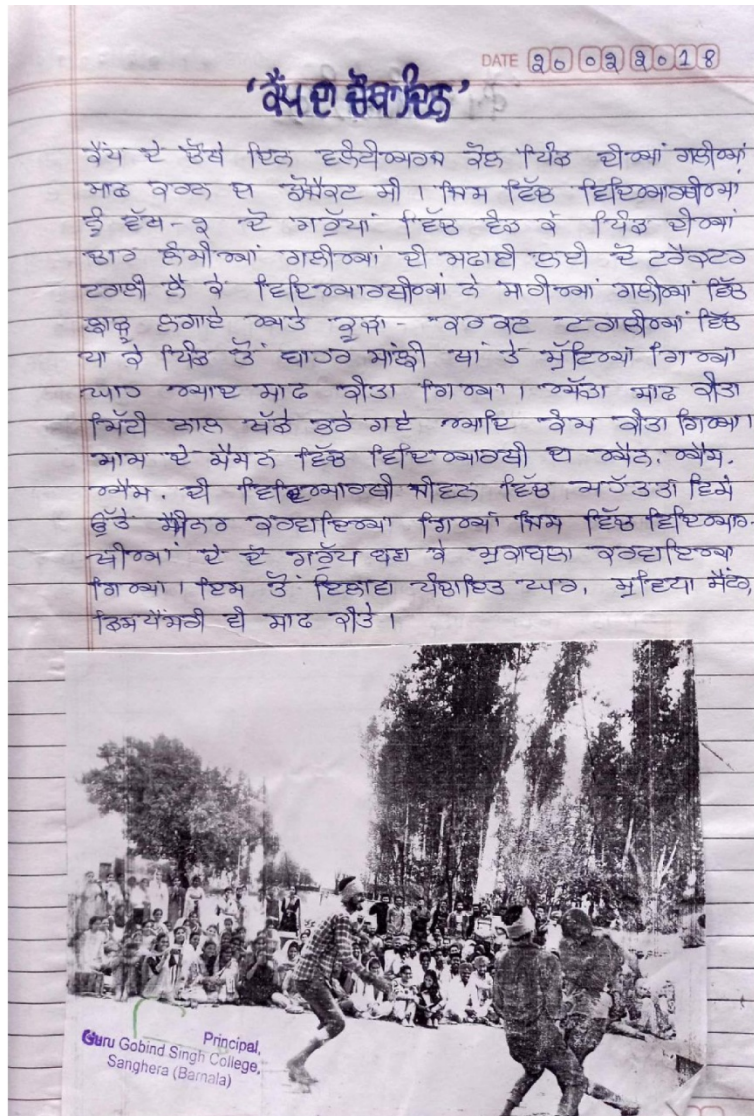 DATE 20 02 2018
'ਕੈਂਪ ਦਾ ਚੌਥਾ ਦਿਨ'
ਕੈਂਪ ਦੇ ਚੌਥੇ ਦਿਨ ਵਲੰਟੀਅਰਜ਼ ਕੋਲ ਪਿੰਡ ਦੀਆਂ ਗਲੀਆਂ
ਸਾਫ ਕਰਨ ਦਾ ਪ੍ਰੋਜੈਕਟ ਸੀ। ਜਿਸ ਵਿੱਚ ਵਿਦਿਆਰਥੀਆਂ
ਨੂੰ ਵੱਖ-੨ ਦੋ ਗਰੁੱਪਾਂ ਵਿੱਚ ਵੰਡ ਕੇ ਪਿੰਡ ਦੀਆਂ
ਚਾਰ ਲੰਮੀਆਂ ਗਲੀਆਂ ਦੀ ਸਫਾਈ ਲਈ ਦੋ ਟਰੈਕਟਰ
ਟਰਾਲੀ ਲੈ ਕੇ ਵਿਦਿਆਰਥੀਆਂ ਨੇ ਸਾਰੀਆਂ ਗਲੀਆਂ ਵਿੱਚ
ਝਾੜੂ ਲਗਾਏ ਅਤੇ ਕੂੜਾ-ਕਰਕਟ ਟਰਾਲੀਆਂ ਵਿੱਚ
ਪਾ ਕੇ ਪਿੰਡ ਤੋਂ ਬਾਹਰ ਸਾਂਝੀ ਥਾਂ ਤੇ ਸੁੱਟਿਆ ਗਿਆ
ਘਾਹ ਆਦਿ ਸਾਫ ਕੀਤਾ ਗਿਆ। ਅੱਡਾ ਸਾਫ ਕੀਤਾ
ਮਿੱਟੀ ਨਾਲ ਖੱਡੇ ਭਰੇ ਗਏ ਆਦਿ ਕੰਮ ਕੀਤਾ ਗਿਆ।
ਸ਼ਾਮ ਦੇ ਸੈਸ਼ਨ ਵਿੱਚ ਵਿਦਿਆਰਥੀ ਦਾ ਐਨ. ਐਸ.
ਐਸ. ਦੀ ਵਿਦਿਆਰਥੀ ਜੀਵਨ ਵਿੱਚ ਮਹੱਤਤਾ ਵਿਸ਼ੇ
ਉੱਤੇ ਸੈਮੀਨਰ ਕਰਵਾਇਆ ਗਿਆ ਜਿਸ ਵਿੱਚ ਵਿਦਿਆਰ-
ਥੀਆਂ ਦੇ ਦੋ ਗਰੁੱਪ ਬਣਾ ਕੇ ਮੁਕਾਬਲਾ ਕਰਵਾਇਆ
ਗਿਆ। ਇਸ ਤੋਂ ਇਲਾਵਾ ਪੰਚਾਇਤ ਘਰ, ਸੁਵਿਧਾ ਸੈਂਟਰ,
ਡਿਸਪੈਂਸਰੀ ਵੀ ਸਾਫ ਕੀਤੇ।
Principal,
Guru Gobind Singh College,
Sanghera (Barnala)